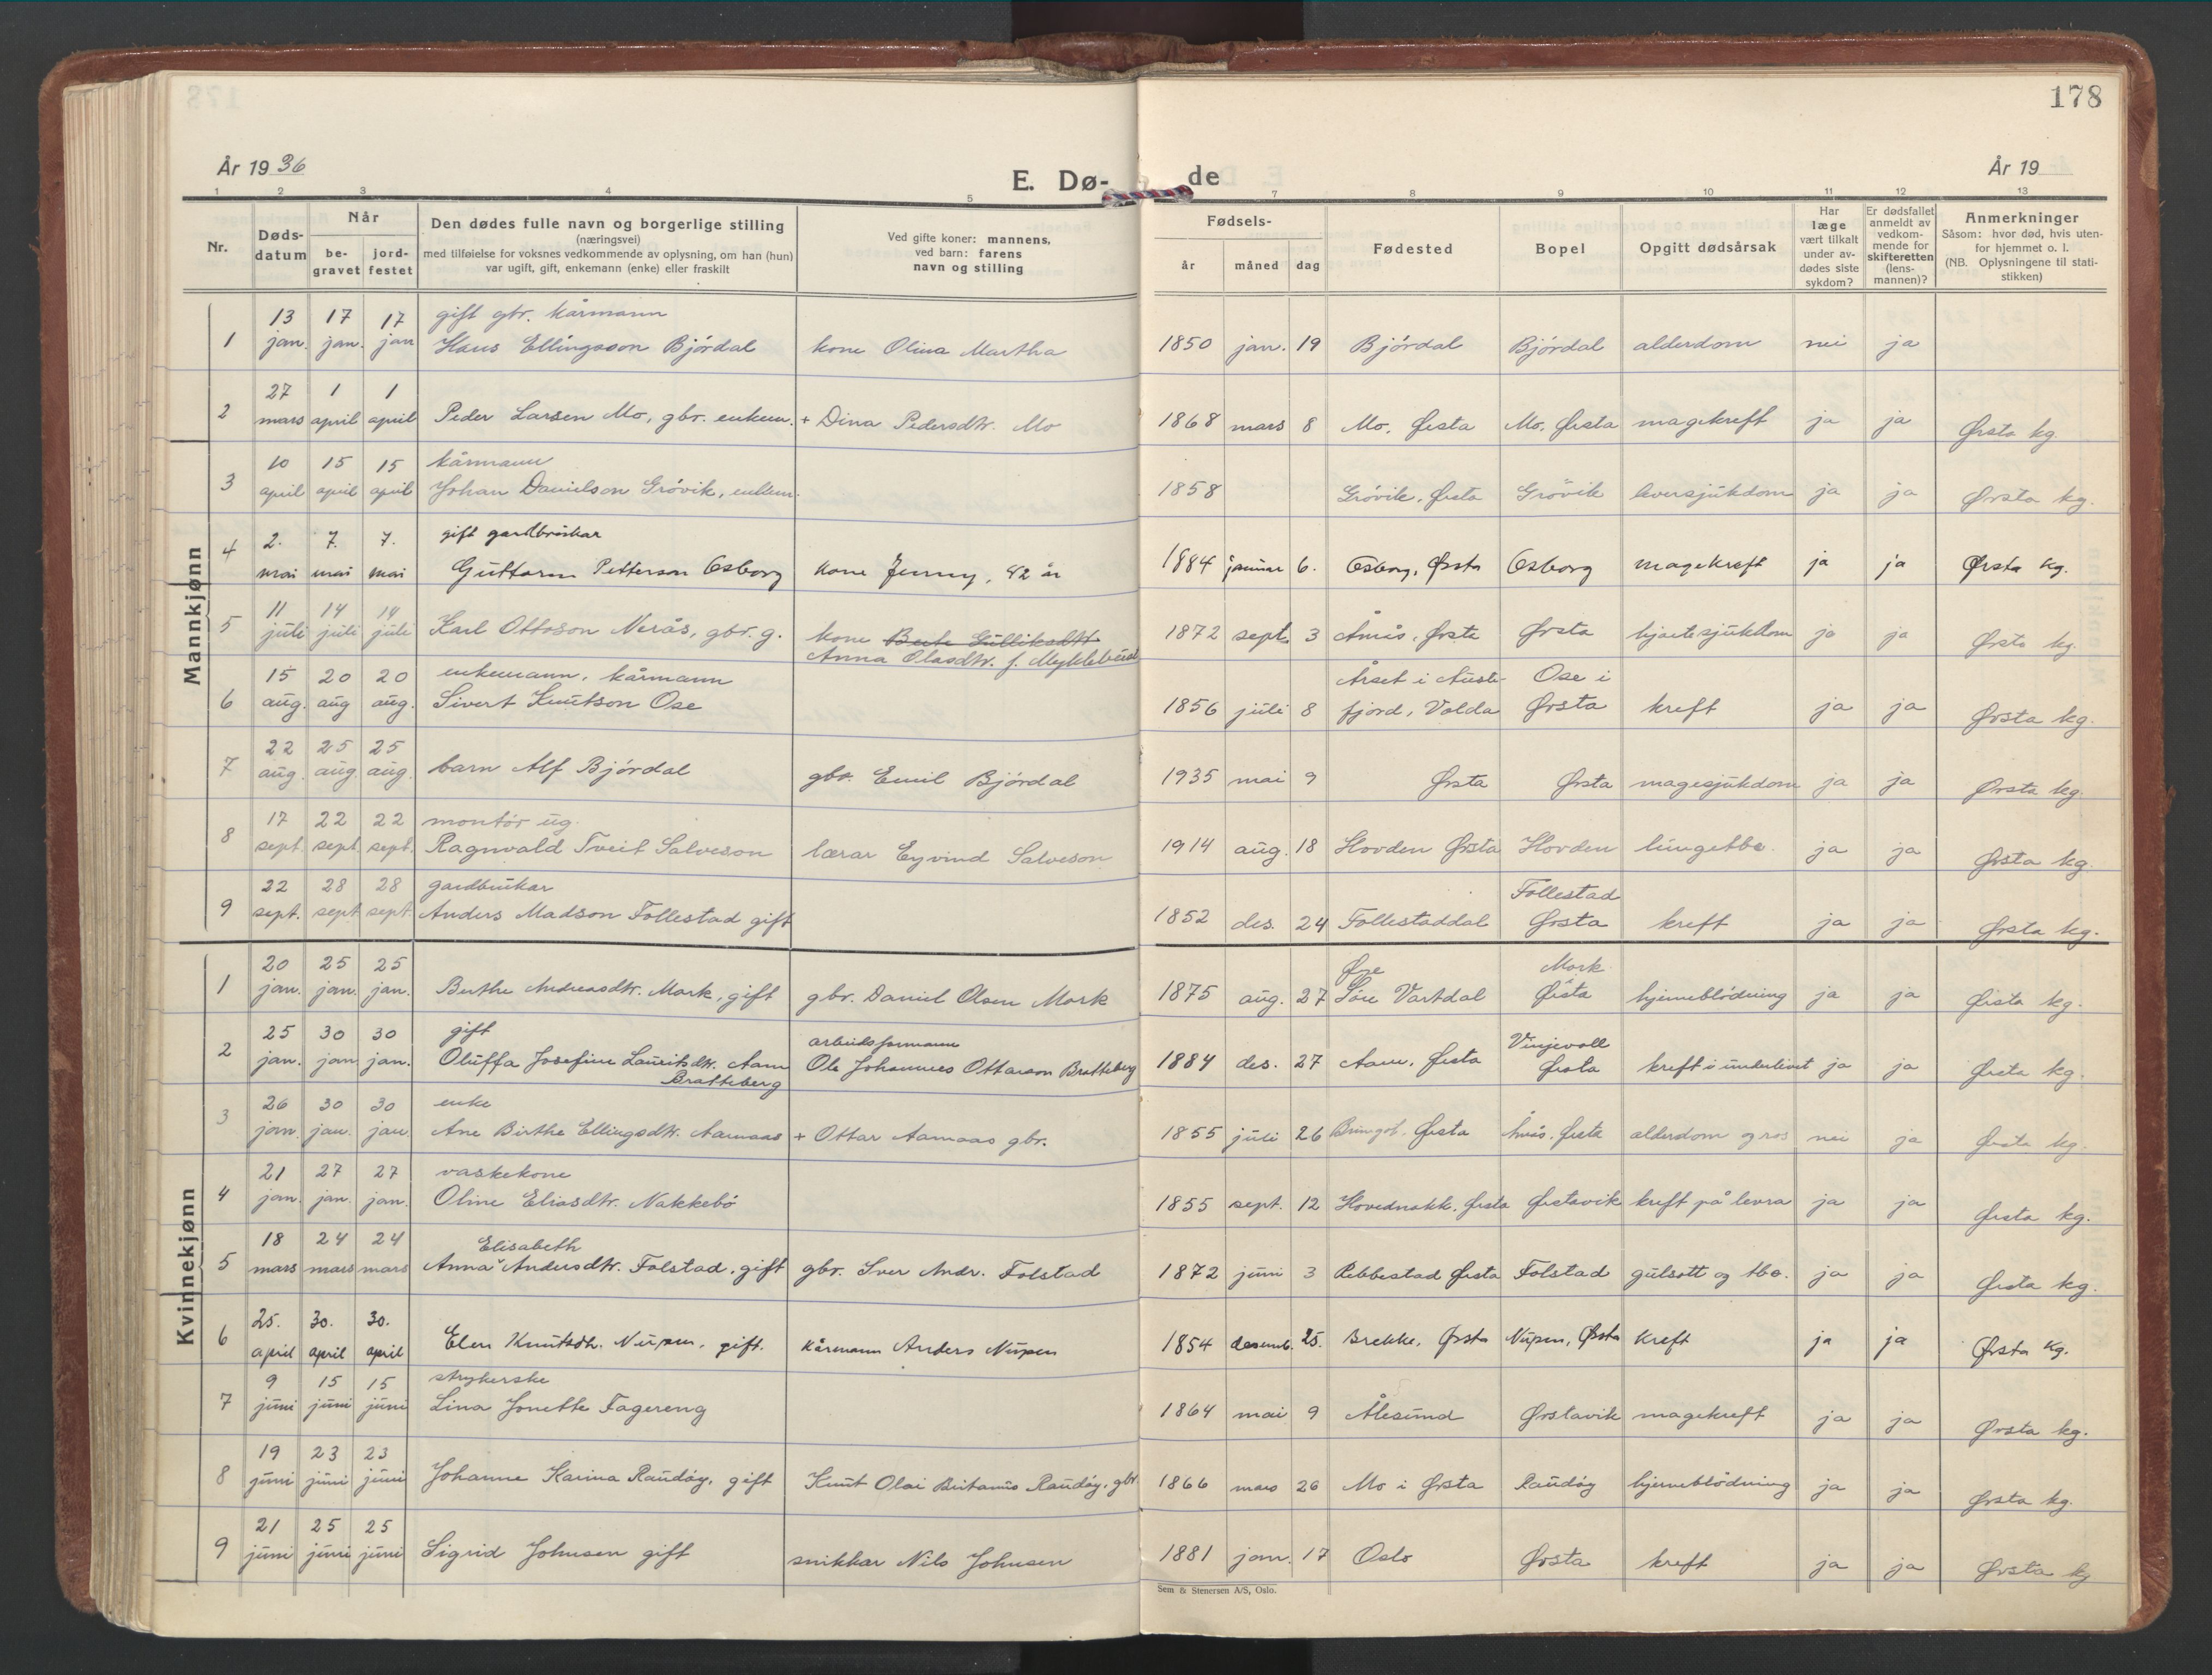 178
År 19 36
E. Dø-
de
År 19
1 2 3 4 5 7 8 9 10 11 12 13
Nr.
Døds-
datum
Når
be-
gravet
jord-
festet
Den dødes fulle navn og borgerlige stilling
(næringsvei)
med tilføielse for voksnes vedkommende av oplysning, om han (hun)
var ugift, gift, enkemann (enke) eller fraskilt
Ved gifte koner: mannens,
ved barn: farens
navn og stilling
Fødsels-
år måned dag
Fødested
Bopel
Opgitt dødsårsak
Har
læge
vært tilkalt
under av-
dødes siste
sykdom?
Er dødsfallet
anmeldt av
vedkom-
mende for
skifteretten
(lens-
mannen)?
Anmerkninger
Såsom: hvor død, hvis uten-
for hjemmet o. l.
(NB. Oplysningene til stati-
stikken)
Mannkjønn
13 17 17 gift gbr. kårmann
1 jan. jan. jan Hans Ellingsson Bjørdal kone Olina Martha 1850 jan. 19 Bjørdal Bjørdal alderdom nei ja
27 1 1
2 mars april april Peder Larsen Mo, gbr. enkem. + Dina Pedersdtr. Mo 1868 mars 8 Mo, Ørsta Mo, Ørsta magekreft ja ja Ørsta kg.
10 15 15 kårmann
3 april april april Johan Danielson Grøvik, enkem. 1858 Grøvik, Ørsta Grøvik leversjukdom ja ja Ørsta kg.
2. 7. 7. gift gardbrukar
4 mai mai mai Guttorm Petterson Osborg kone Jenny, 42 år 1884 januar 6. Osborg, Ørsta Osborg magekreft ja ja Ørsta kg.
11 14 14
5 juli juli juli Karl Ottoson Nerås, gbr. g. kone Berte Gulliksdtr. 1872 sept. 3 Åmås, Ørsta Ørsta hjartesjukdom ja ja Ørsta kg.
Anna Olasdtr. f. Myklebust
15 20 20 enkemann, kårmann Årset i Auste- Ose i
6 aug. aug aug. Sivert Knutson Ose 1856 juli 8 fjord, Volda Ørsta kreft ja ja Ørsta kg.
22 25 25
7 aug. aug. aug. barn Alf Bjørdal gbr. Emil Bjørdal 1935 mai 9 Ørsta Ørsta magesjukdom ja ja Ørsta kg.
17 22 22 montør ug.
8 sept. sept. sept. Ragnvald Tveit Salveson lærar Eyvind Salveson 1914 aug. 18 Hovden Ørsta Hovden lungetbc. ja ja Ørsta kg.
22 28 28 gardbrukar Follestad
9 sept. sept sept. Anders Madson Follestad gift 1852 des. 24 Follestaddal Ørsta kreft ja ja Ørsta kg.
Kvinnekjønn
20 25 25 Øre Mork
1 jan. jan. jan. Berthe Andreasdtr. Mork, gift gbr. Daniel Olsen Mork 1875 aug. 27 Søre Vartdal Ørsta hjerneblødning ja ja Ørsta kg.
25 30 30 gift arbeidsformann Vinjevoll
2 jan. jan jan. Oluffa Josefine Lauritsdtr. Aam Ole Johannes Ottarson Bratteberg 1884 des. 27 Aam, Ørsta Ørsta kreft i underlivet ja ja Ørsta kg.
Bratteberg
26 30 30 enke
3 jan. jan. jan. Ane Birthe Ellingsdtr. Aamaas + Ottar Aamaas gbr. 1855 juli 26 Ørsta Åmås, Ørsta alderdom og ros nei ja Ørsta kg.
21 27 27 vaskekone
4 jan. jan. jan. Oline Eliasdtr. Nakkebø 1855 sept. 12 Hovednakk, Ørsta Ørstavik kreft på levra ja ja Ørsta kg.
18 24 24 Elisabeth
5 mars mars mars Anna Andersdtr. Folstad, gift gbr. Iver Andr. Folstad 1872 juni 3 Rebbestad Ørsta Folstad gulsott og tbc. ja ja Ørsta kg.
25. 30. 30.
6 april april april Elen Knutsdtr. Nupen, gift. kårmann Anders Nupen 1854 desemb. 25. Brekke, Ørsta Nupen, Ørsta kreft ja ja Ørsta kg.
9 15 15 strykerske
7 juni juni juni Lina Jonette Fagereng 1864 mai 9 Ålesund Ørstavik magekreft ja ja Ørsta kg.
19 23 23
8 juni juni juni Johanne Karina Raudøy, gift Knut Olai Bertanus Raudøy, gbr. 1866 mars 26 Mo i Ørsta Raudøy hjerneblødning ja ja Ørsta kg.
21 25 25
9 juni juni juni Sigrid Johnsen gift snikkar Nils Johnsen 1881 jan. 17 Oslo Ørsta kreft ja ja Ørsta kg
Sem & Stenersen A/S, Oslo.